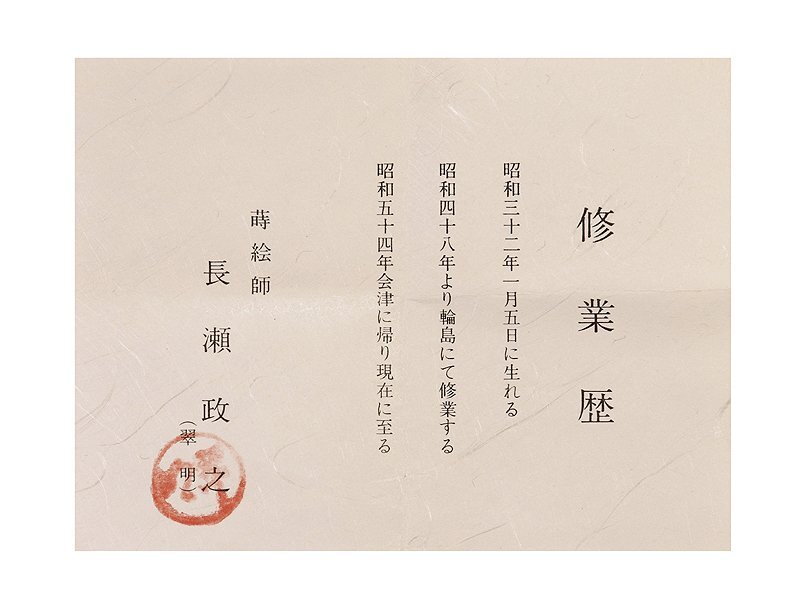 修業歴
昭和三十二年一月五日に生れる
昭和四十八年より輪島にて修業する
昭和五十四年会津に帰り現在に至る
蒔絵師
長瀬政之
（翠明）